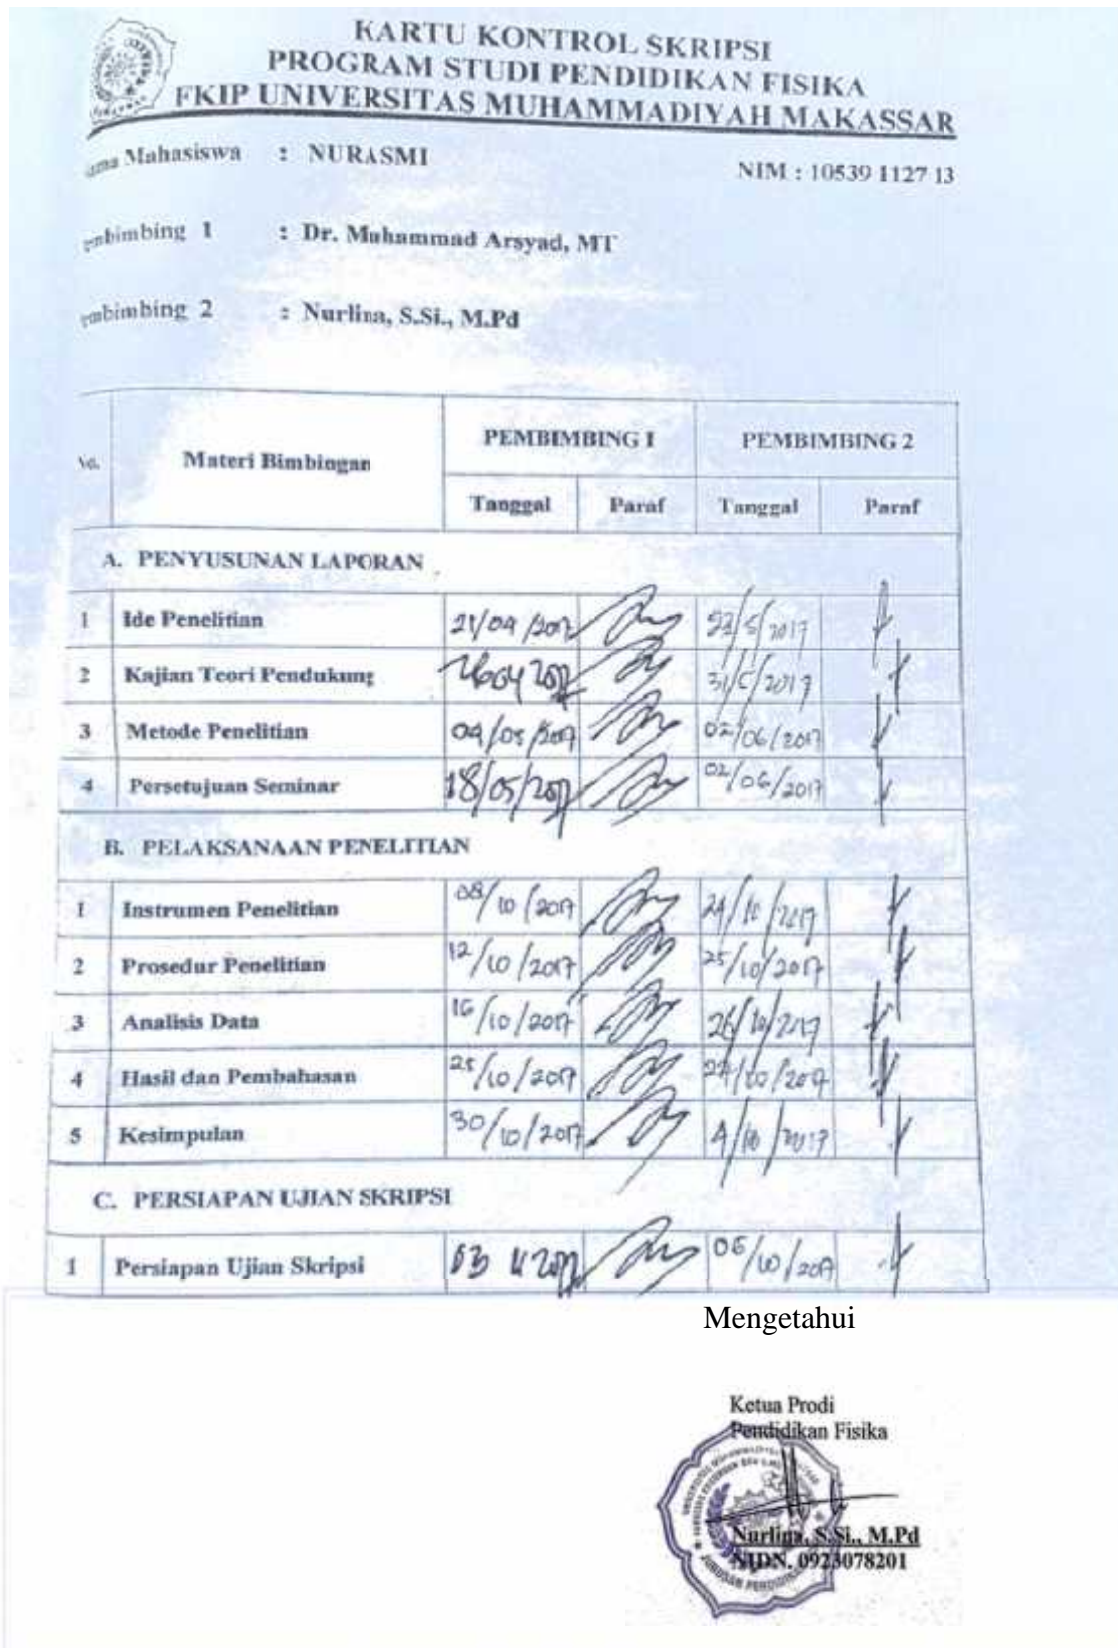 KARTU KONTROL SKRIPSI
PROGRAM STUDI PENDIDIKAN FISIKA
FKIP UNIVERSITAS MUHAMMADIYAH MAKASSAR
Mahasiswa : NURASMI NIM : 10539 1127 13
embimbing 1 : Dr. Muhammad Arsyad, MT
embimbing 2 : Nurlina, S.Si., M.Pd
No. Materi Bimbingan PEMBIMBING I PEMBIMBING 2
Tanggal Paraf Tanggal Paraf
A. PENYUSUNAN LAPORAN
1 Ide Penelitian 21/04/2017 23/5/2017
2 Kajian Teori Pendukung 31/5/2017
3 Metode Penelitian 04/05/2017 02/06/2017
4 Persetujuan Seminar 18/05/2017 02/06/2017
B. PELAKSANAAN PENELITIAN
1 Instrumen Penelitian 08/10/2017 24/10/2017
2 Prosedur Penelitian 12/10/2017 25/10/2017
3 Analisis Data 16/10/2017 26/10/2017
4 Hasil dan Pembahasan 25/10/2017 27/10/2017
5 Kesimpulan 30/10/2017 4/10/2017
C. PERSIAPAN UJIAN SKRIPSI
1 Persiapan Ujian Skripsi 03 11 2017 06/10/2017
Mengetahui
Ketua Prodi
Pendidikan Fisika
Nurlina, S.Si., M.Pd
NIDN. 0923078201